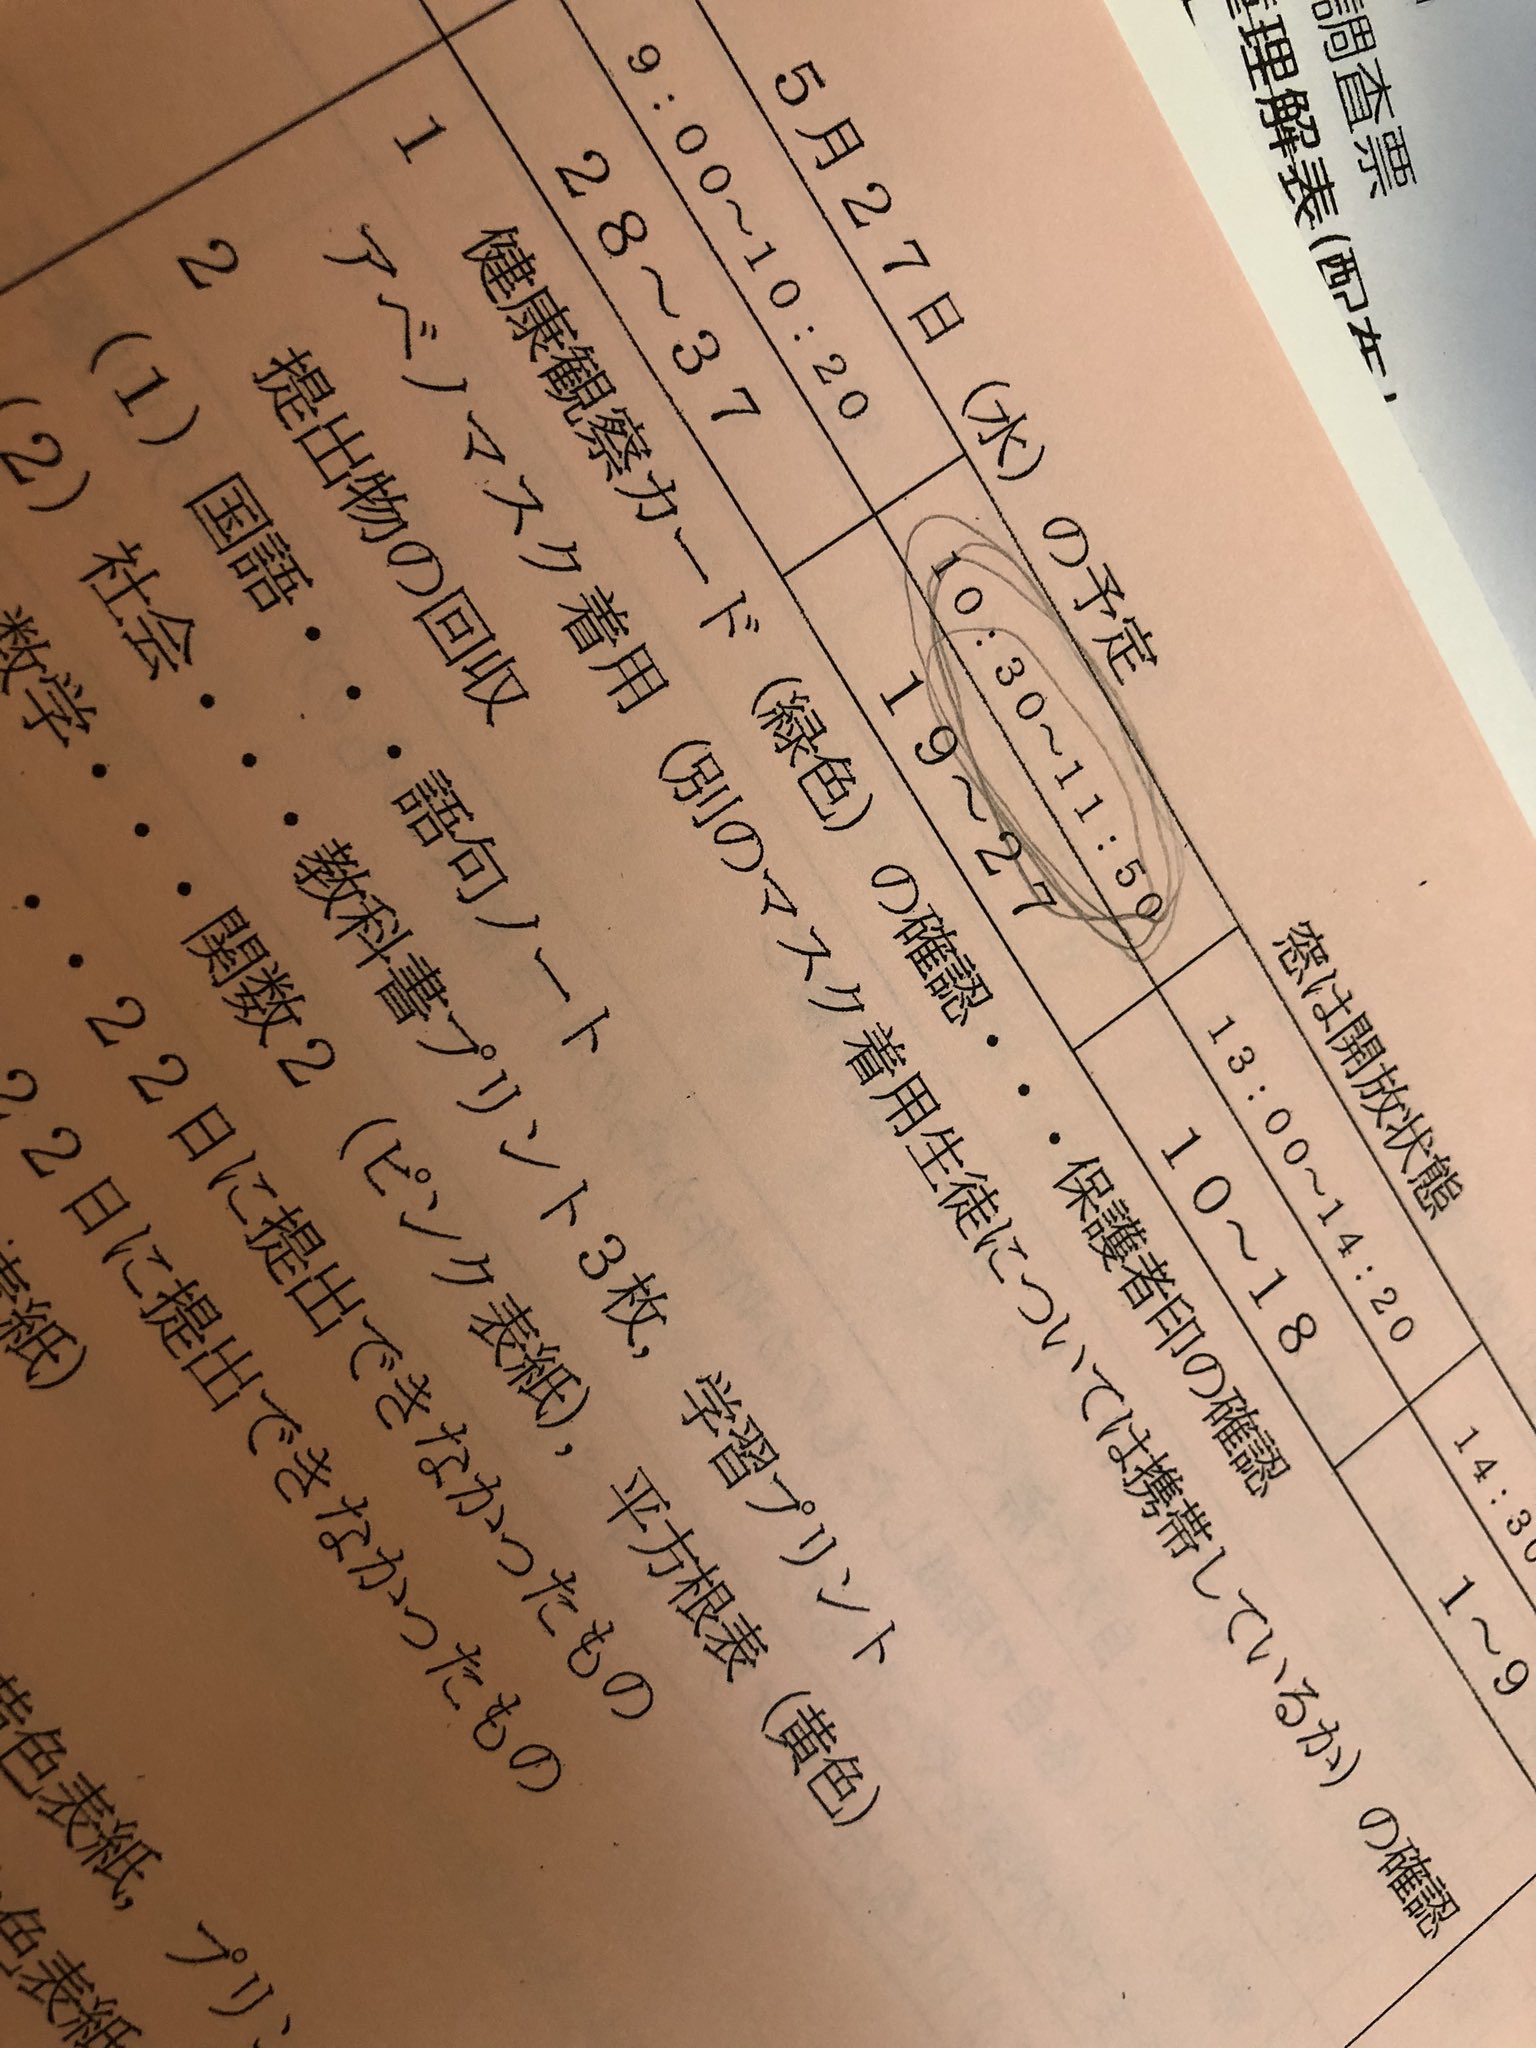 調査票
理解表(配布
5月27日(水)の予定　　窓は開放状態
9:00~10:20　10:30~11:50　13:00~14:20　14:30
28~37　19~27　10~18　1~9
1　健康観察カード(緑色)の確認・・・保護者印の確認
アベノマスク着用(別のマスク着用生徒については携帯しているか)の確認
2　提出物の回収
(1)国語・・・語句ノート
(2)社会・・・教科書プリント3枚,学習プリント
数学・・・関数2(ピンク表紙),平方根表(黄色)
・・・22日に提出できなかったもの
22日に提出できなかったもの
表紙)
黄色表紙,プリン
色表紙